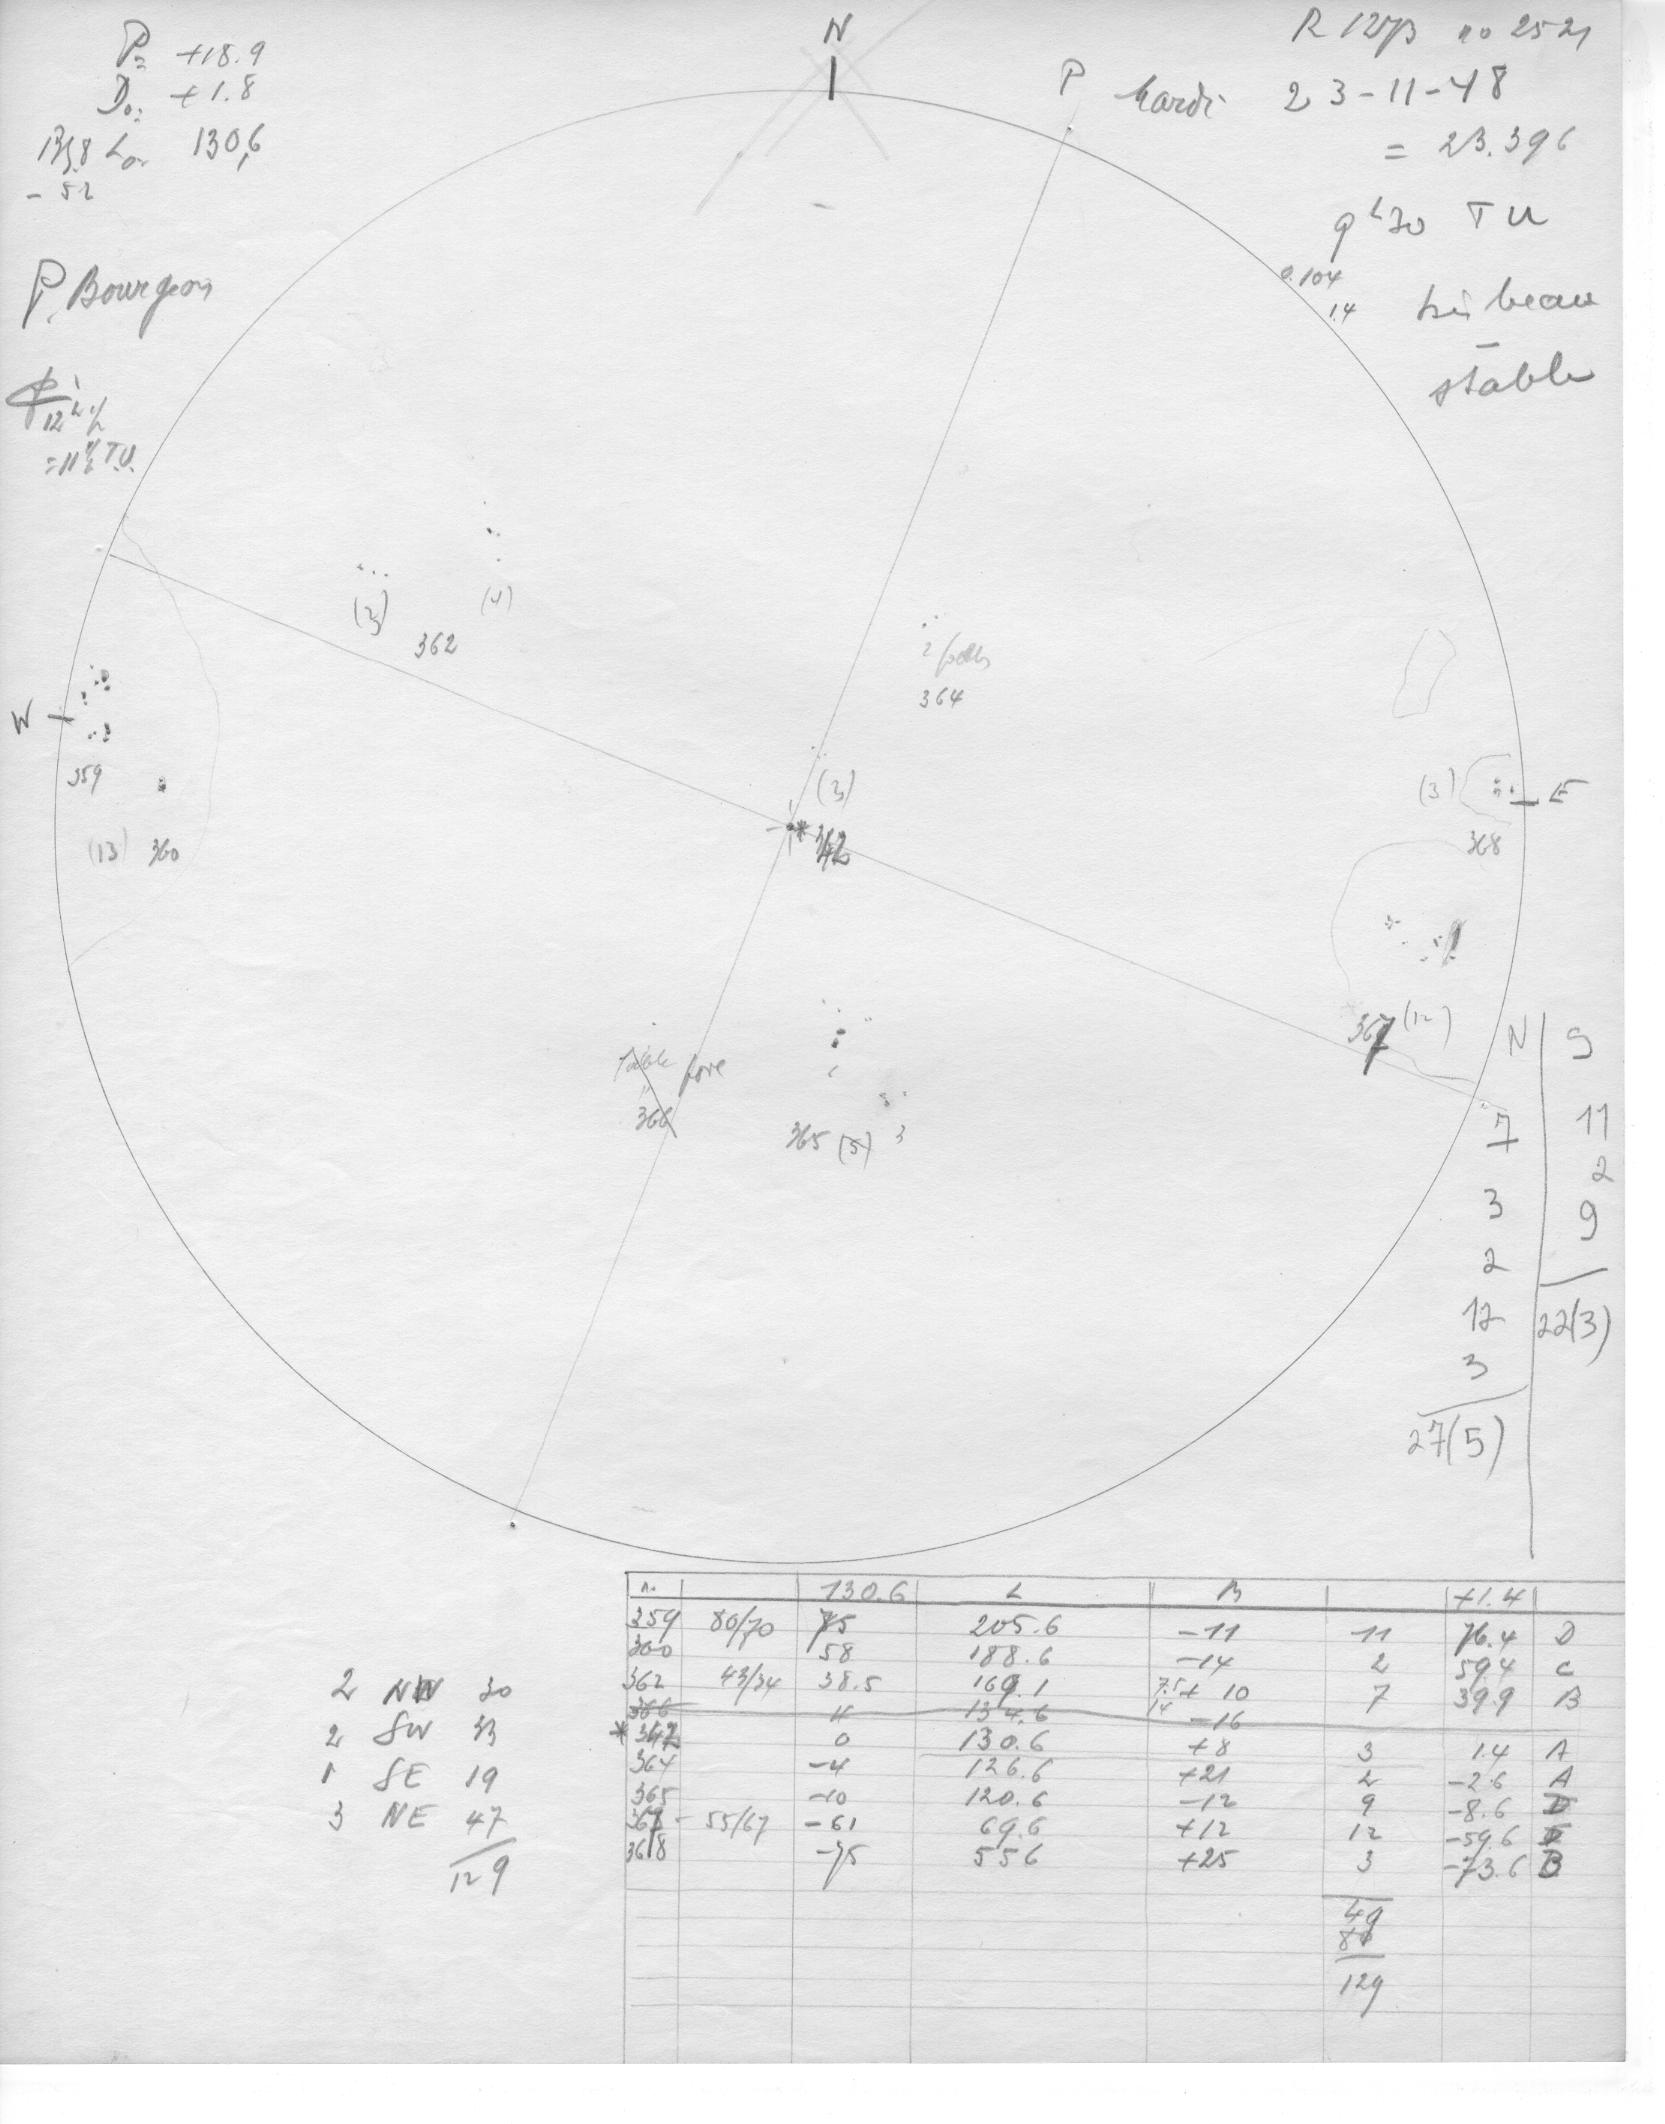 P= +18.9
Do= +1.8
Lo= 130,6
- 52
P. Bourgeon
12
= 11 T.U.
N
P
R no 2521
Mardi 23-11-48
= 23.396
9h30 TU
0.104
1.4
très beau
–
stable
(3)
(4)
362
2
364
W
359
(13) 360
(3)
* 342
(3)
E
368
367 (12)
pore
366
365 (5) 3
N S
7 11
3 2
2 9
12 22(3)
3
27(5)
n. 130.6 L B +1.4
359 80/70 75 205.6 -11 11 76.4 D
360 58 188.6 -14 2 59.4 C
362 43/34 38.5 169.1 7.5 14 + 10 7 39.9 B
366 4 134.6 -16
* 342 0 130.6 +8 3 1.4 A
364 -4 126.6 +21 2 -2.6 A
365 -10 120.6 -12 9 -8.6 D
367 - 55/67 -61 69.6 +12 12 -59.6
368 -75 55 6 +25 3 -73.6 B
49
80
129
2 NW 30
2 SW 33
1 SE 19
3 NE 47
129